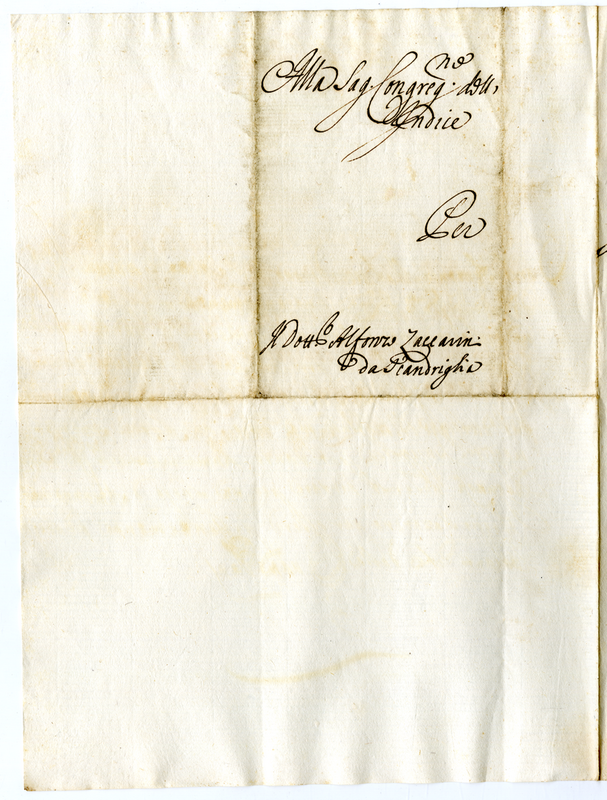 Alla Sag. Congreg.ne dell'
Indice
Per
Il Dott.re Alfonso Zaccarini
da Scandriglia